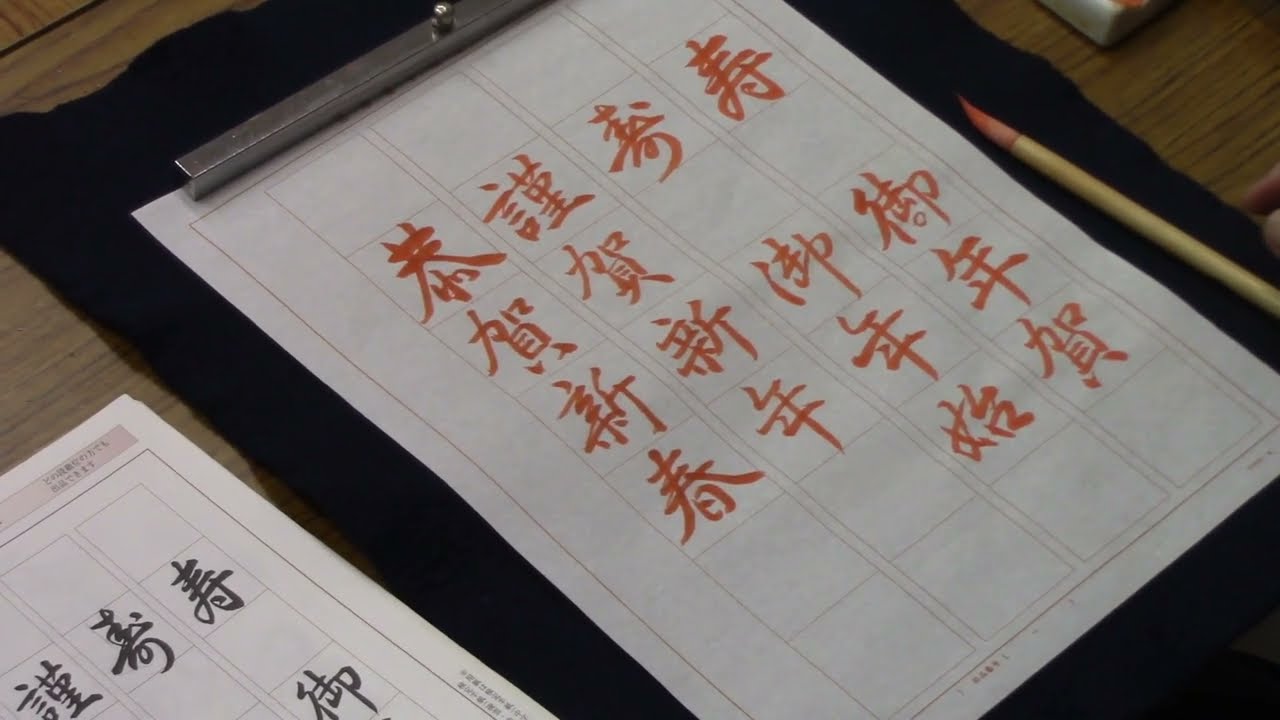 寿 御年賀
寿 御年始
謹賀新年
恭賀新春
どの段級位の方でも
出品できます
寿 御
寿
謹